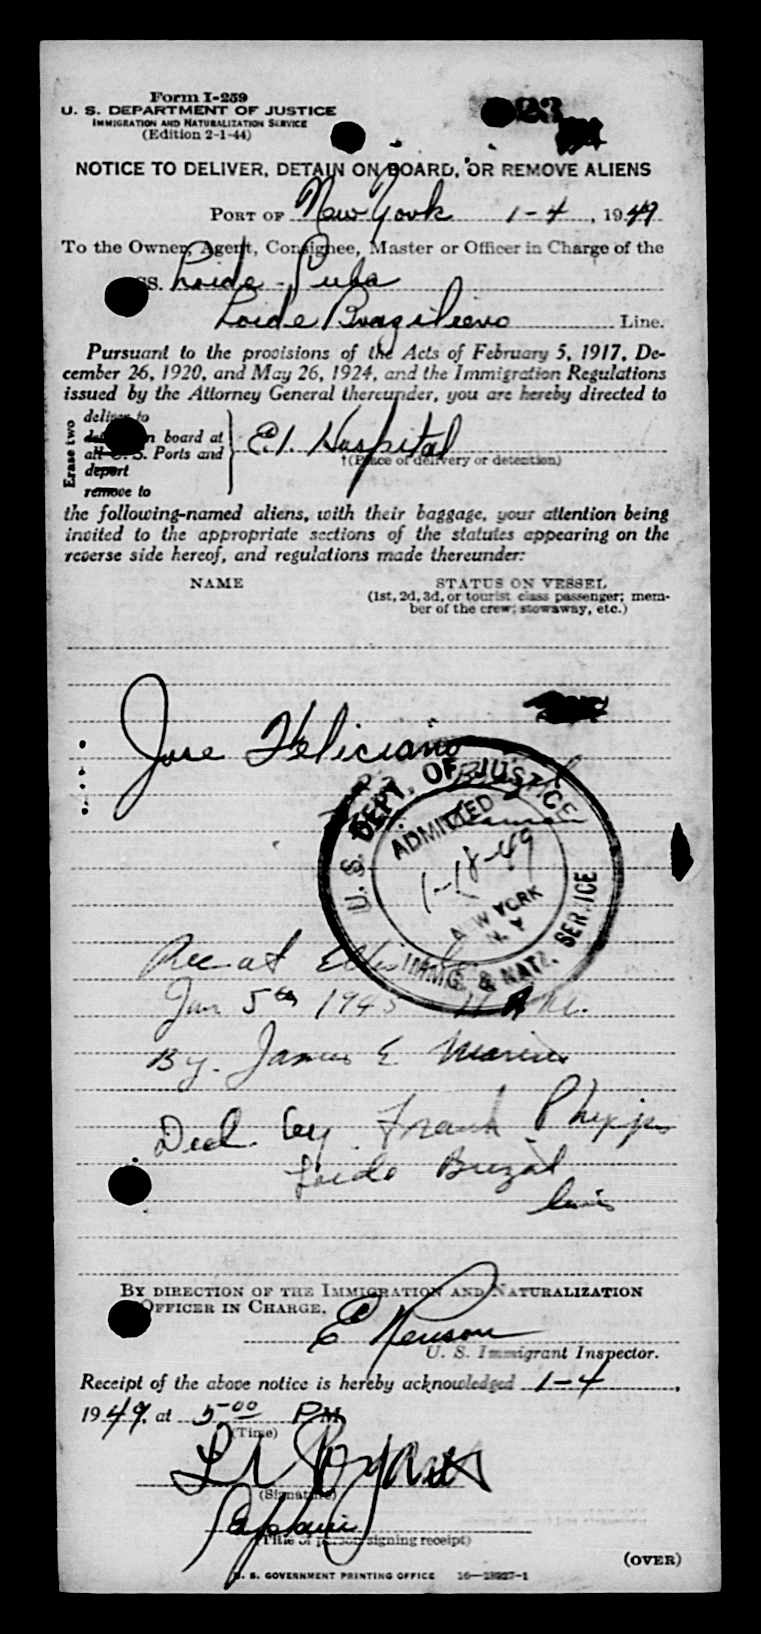 Form I-259
U. S. DEPARTMENT OF JUSTICE
IMMIGRATION AND NATURALIZATION SERVICE
(Edition 2-1-44)
23
NOTICE TO DELIVER, DETAIN ON BOARD, OR REMOVE ALIENS
PORT OF New York 1-4, 1949
To the Owner, Agent, Consignee, Master or Officer in Charge of the
SS. Loide - Cuba
Loide Brazileiro Line.
Pursuant to the provisions of the Acts of February 5, 1917, De-
cember 26, 1920, and May 26, 1924, and the Immigration Regulations
issued by the Attorney General thereunder, you are hereby directed to
Erase two
deliver to
n board at
all U. S. Ports and
deport
remove to
E.I. Hospital
†(Place of delivery or detention)
the following-named aliens, with their baggage, your attention being
invited to the appropriate sections of the statutes appearing on the
reverse side hereof, and regulations made thereunder:
NAME STATUS ON VESSEL
(1st, 2d, 3d, or tourist class passenger; mem-
ber of the crew; stowaway, etc.)
Jose Feliciano
Brazil
U. S. DEPT. OF JUSTICE
ADMITTED
1-18-49
NEW YORK
N. Y.
IMMIG. & NATZ. SERVICE
Rec at Ellis
Jan 5th 194
By. James E
Decl by Frank Phipps
Loide
BY DIRECTION OF THE IMMIGRATION AND NATURALIZATION
OFFICER IN CHARGE.
E
U. S. Immigrant Inspector.
Receipt of the above notice is hereby acknowledged 1-4,
1949, at 5 00 PM
(Time)
(Signature)
Captain
(Title of person signing receipt)
(OVER)
U. S. GOVERNMENT PRINTING OFFICE 16-18927-1